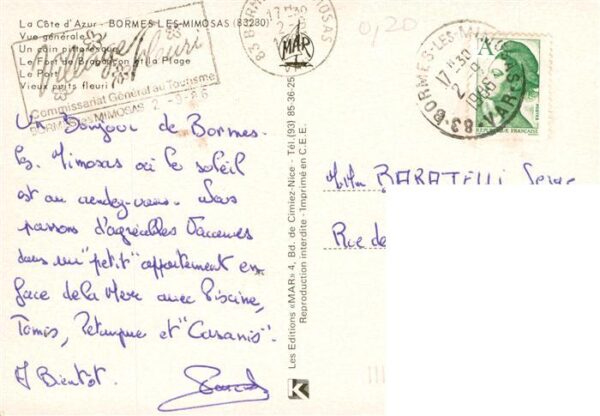 La Côte d'Azur - BORMES LES MIMOSAS (83280)
Vue générale
Un coin pittoresque
Le Fort de Brégançon et la Plage
Le Port
Vieux puits fleuri
Village fleuri
Commissariat Général au Tourisme
BORMES les MIMOSAS 2-9-86
83 BORMES-LES-MIMOSAS
17H30
MAR
0,20
83-BORMES-LES-MIMOSAS-VAR
17H30
2-9
1986
A
REPUBLIQUE FRANCAISE
Un Bonjour de Bormes-
les Mimosas où le soleil
est au rendez-vous. Nous
passons d'agréables Vacances
dans un "petit" appartement en
face de la Mer avec Piscine,
Tennis, Pétanque et "Casanis".
A Bientôt.
Les Editions «MAR» 4, Bd. de Cimiez-Nice - Tél. (93) 85-36-25
Reproduction interdite - Imprimé en C.E.E.
K
BARATELLI Serge
Rue de